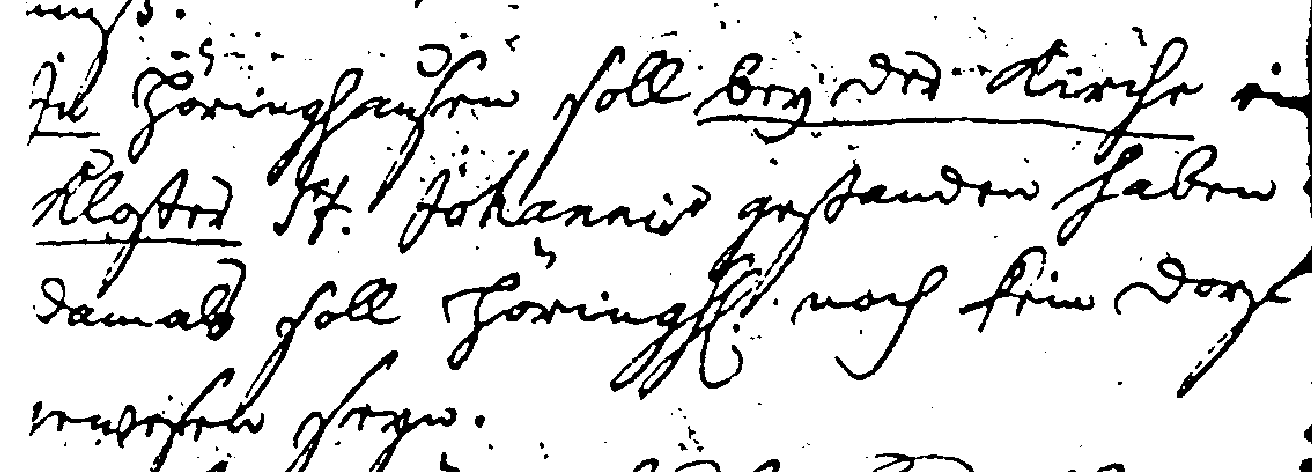 In Höringhausen soll bey der Kirche ein
Kloster St. Johannis gestanden haben
damals soll Höringhs. noch kein Dorf
gewesen seyn.